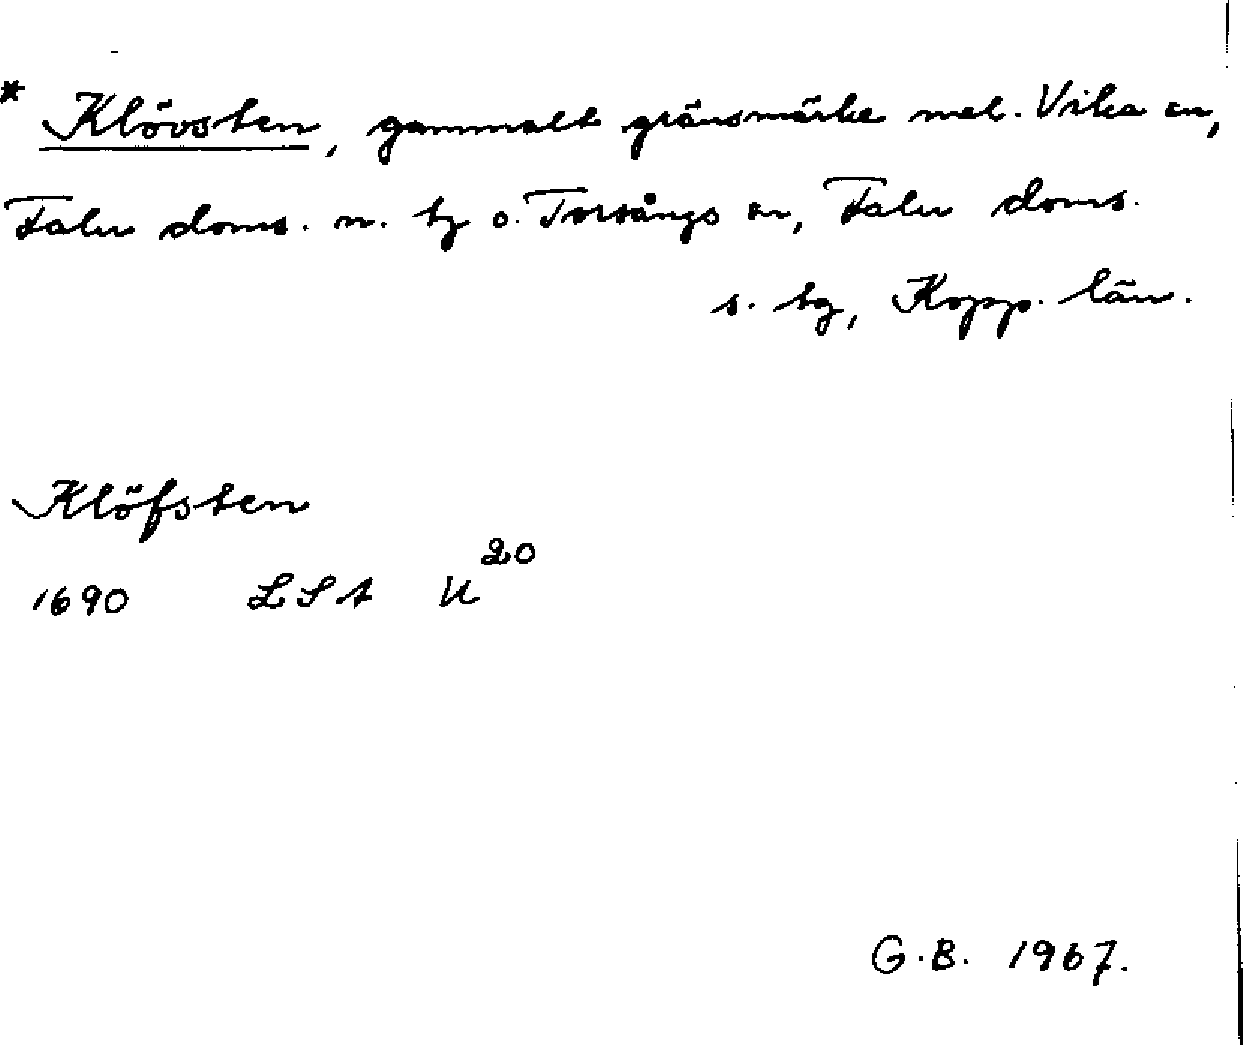 * Klövsten, gammalt gränsmärke mel. Vika sn,
Falu doms. n. tg o. Torsångs sn, Falu doms.
s. tg, Kopp. län.
Klöfsten
1690 LSA U²⁰
G.B. 1967.